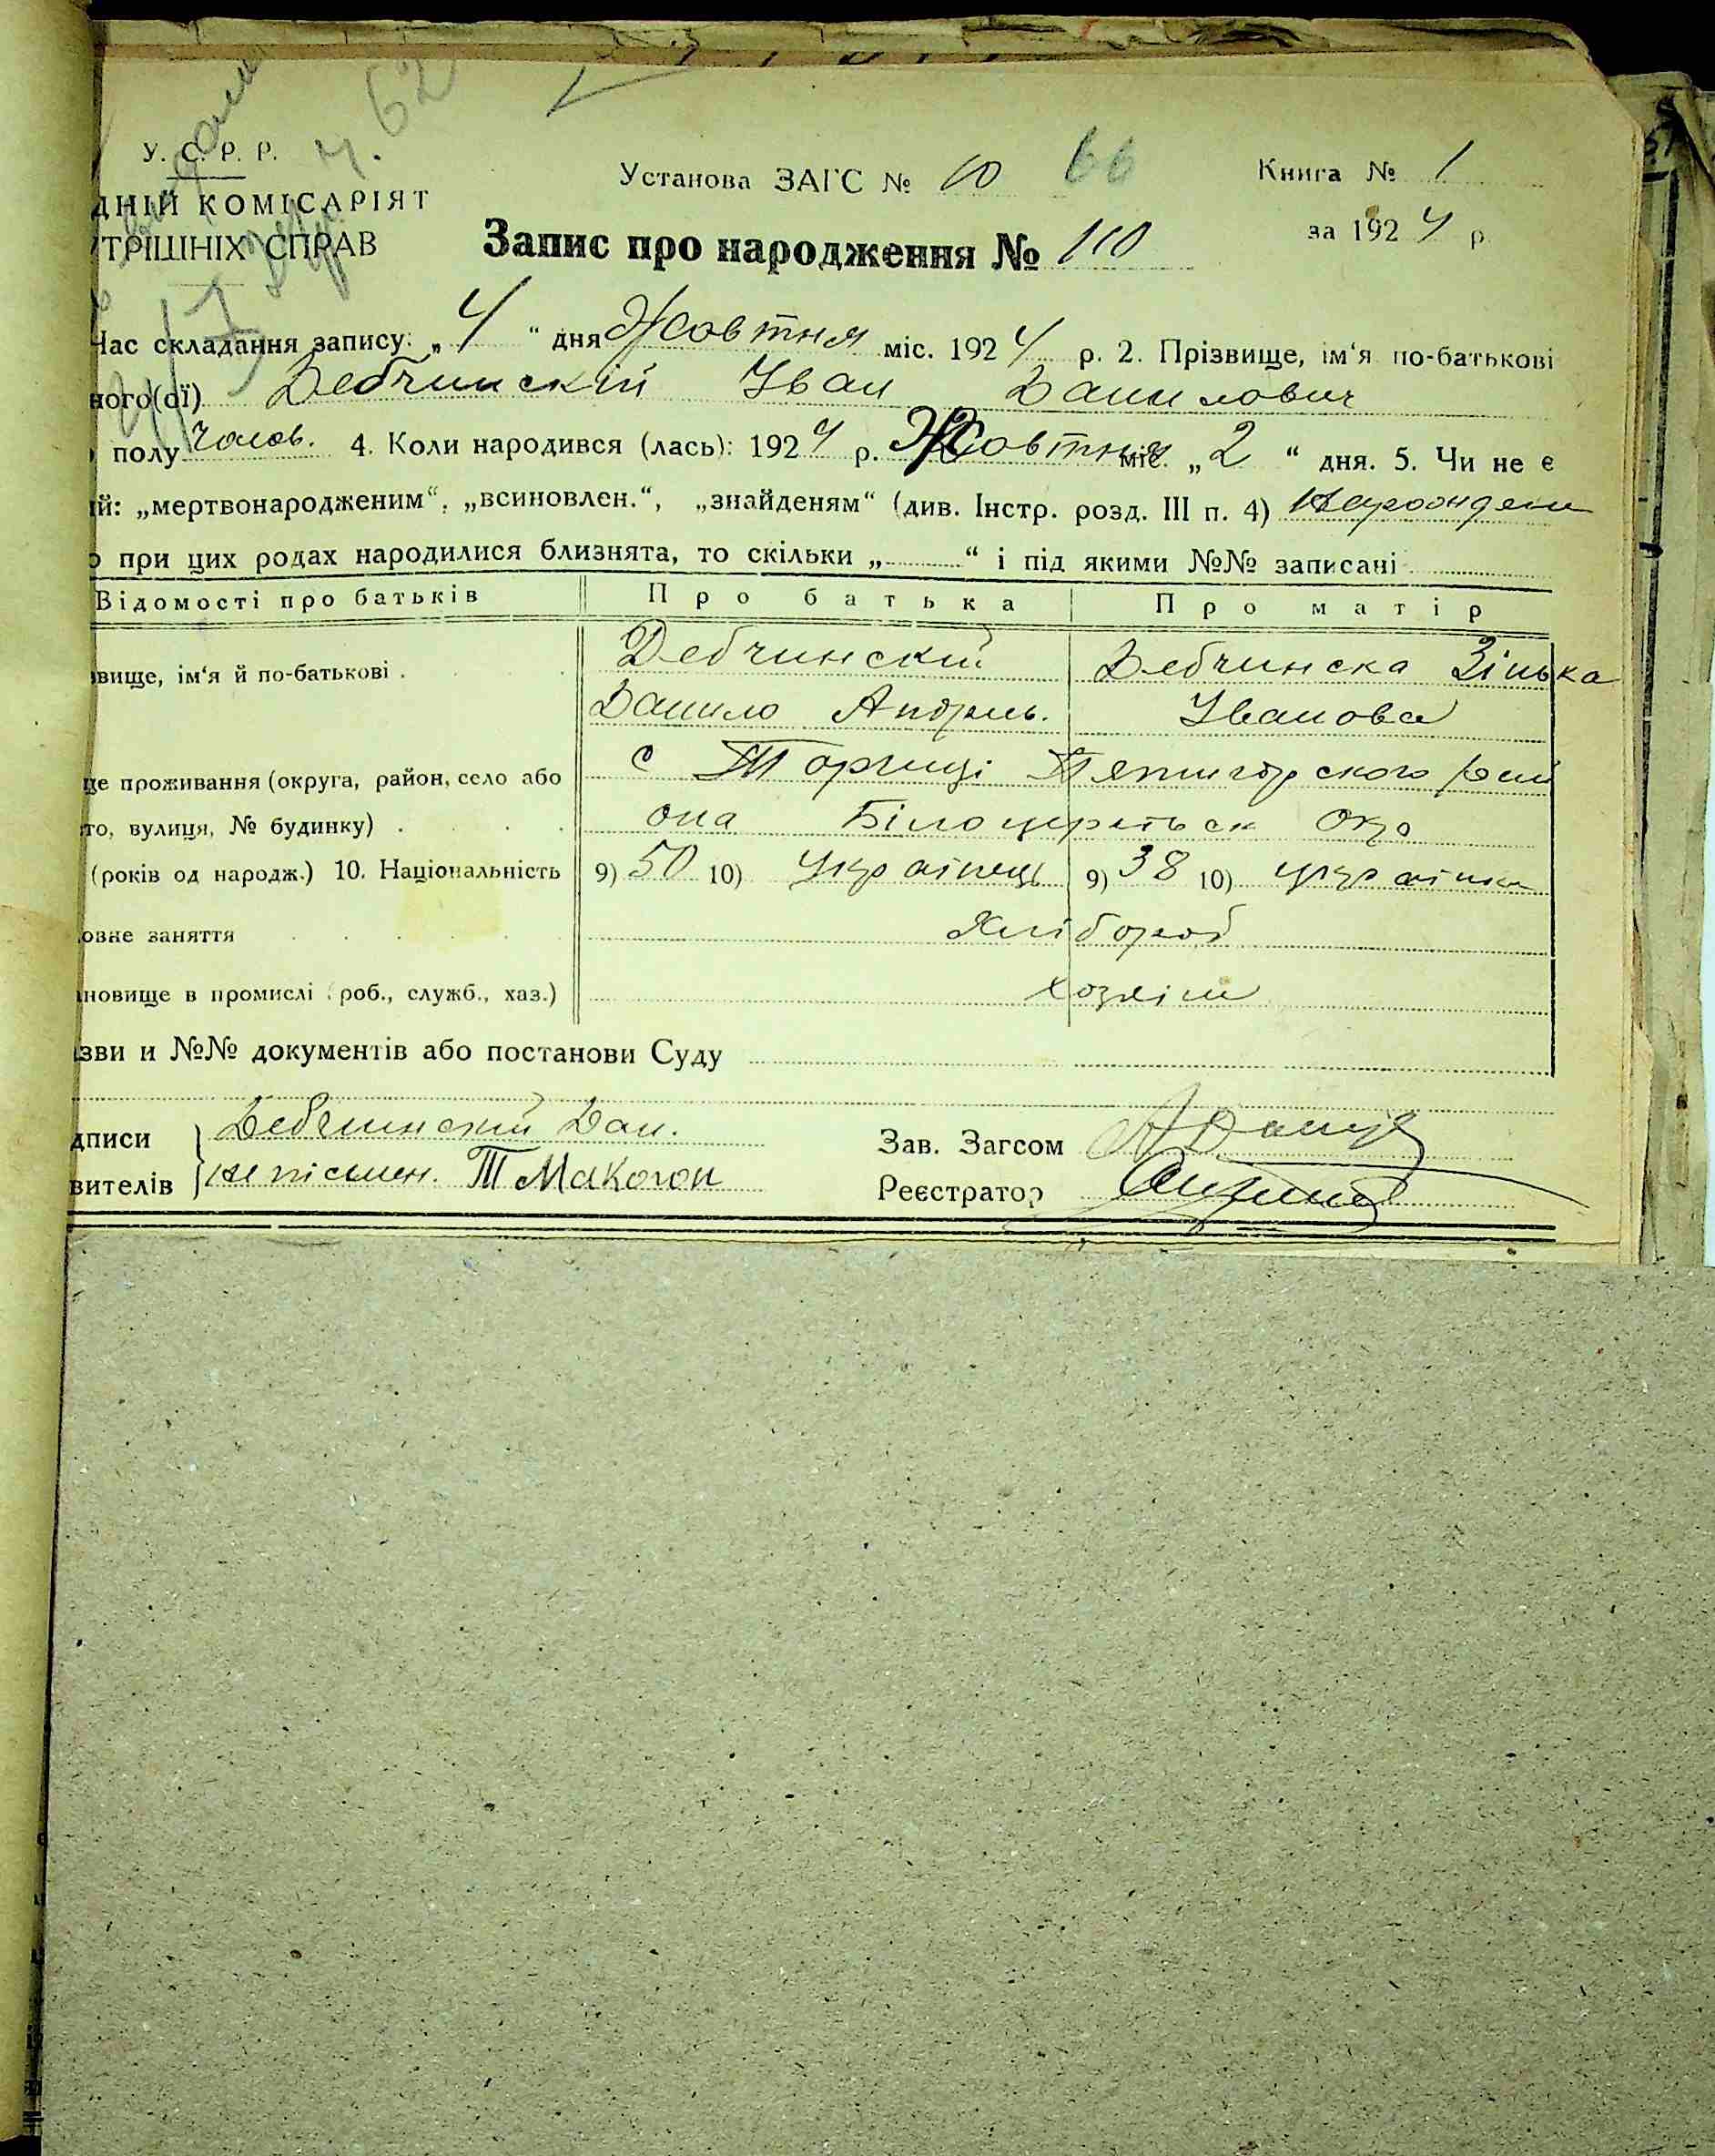 У. С. Р. Р.
ч. 62
Установа ЗАГС № 10 66 Книга № 1
ДНІЙ КОМІСАРІЯТ
за 1924 р.
ТРІШНІХ СПРАВ
Запис про народження № 110
Час складання запису: „4“ дня Жовтня міс. 1924 р. 2. Прізвище, ім‘я по-батькові
ного(ої) Дебчинскій Іван Данилович
полу Чолов. 4. Коли народився (лась): 1924 р. Жовтня міс. „2“ дня. 5. Чи не є
ий: „мертвонародженим“, „всиновлен.“, „знайденям“ (див. Інстр. розд. III п. 4)
о при цих родах народилися близнята, то скільки „ “ і під якими №№ записані
Відомості про батьків Про батька Про матір
звище, ім‘я й по-батькові . Дебчинский Дебчинска Зінька
Данило Андрієв. Іванова
це проживання (округа, район, село або с Торчиці Пятигорского рай
то, вулиця, № будинку) . она Білоцерківск Окр
(років од народж.) 10. Національність 9) 50 10) Українець 9) 38 10) українка
овне заняття Хлібороб
ановище в промислі (роб., служб., хаз.) хозяїин
азви и №№ документів або постанови Суду
дписи Дебчинский Дан. Зав. Загсом
вителів неписьмен. Т Макогон Реєстратор